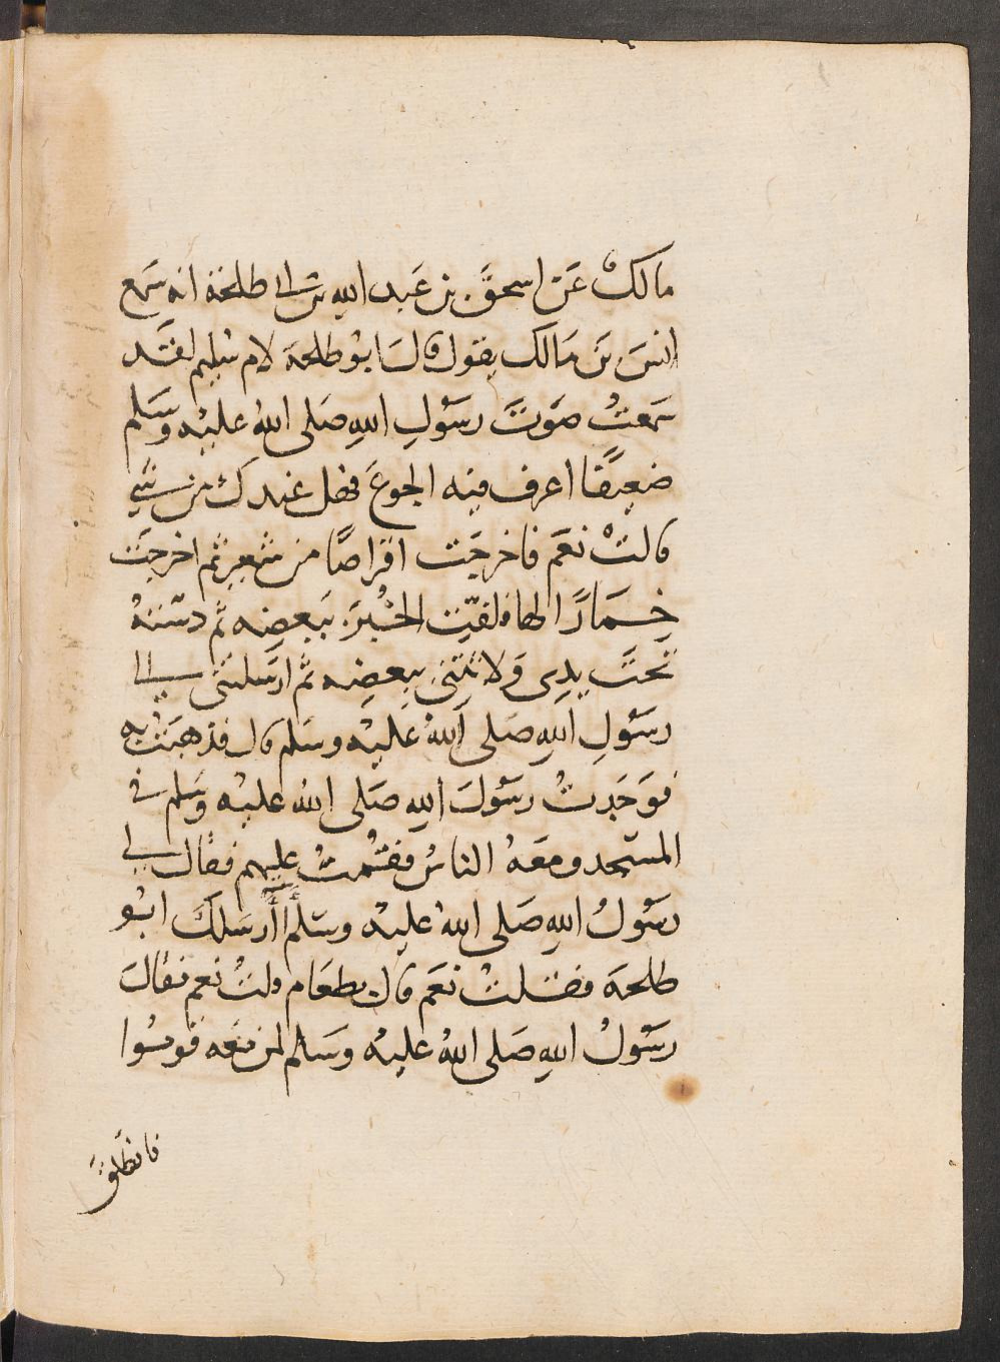 مالكٌ عَن اسحقَ بن عَبد الله بن ابى طلحة انه سَمع
انسَ بنَ مَالك يقول قالَ ابُو طلحة لام سُليم لقَد
سَمعتُ صَوتَ رسَوُلِ اللهِ صَلى اللهُ عليْه وسَلم
ضعيفًا اعرف فيه الجوعَ فهل عندك من شي
قالتْ نعَم فاخرجَت اقراصًا من شعيرٍ ثم اخرجَت
خِمَارًا لها فلفّت الخُبْزَ ببَعضِه ثم دسّتهُ
تحتَ يدِى وَلاثتنى ببعضِه ثم ارسَلتنى الى
رسَوُلِ اللهِ صَلى اللهُ عليْه وسَلم قال فذهبَتُ به
فوَجَدتُ رسَوُلَ اللهِ صَلى اللهُ عليْه وسَلم فى
المسَجد ومعَهُ الناسُ فقُمتُ عليهم فقال لى
رسَوُلُ اللهِ صَلى اللهُ عليْه وسَلم أأرسَلكَ ابُو
طلحة فقلتُ نعَم قال بطعَام قلتُ نعم فقالَ
رسَوُلُ اللهِ صَلى اللهُ عليْه وسَلم لمن معَه قومُوا
فانطَلقَ